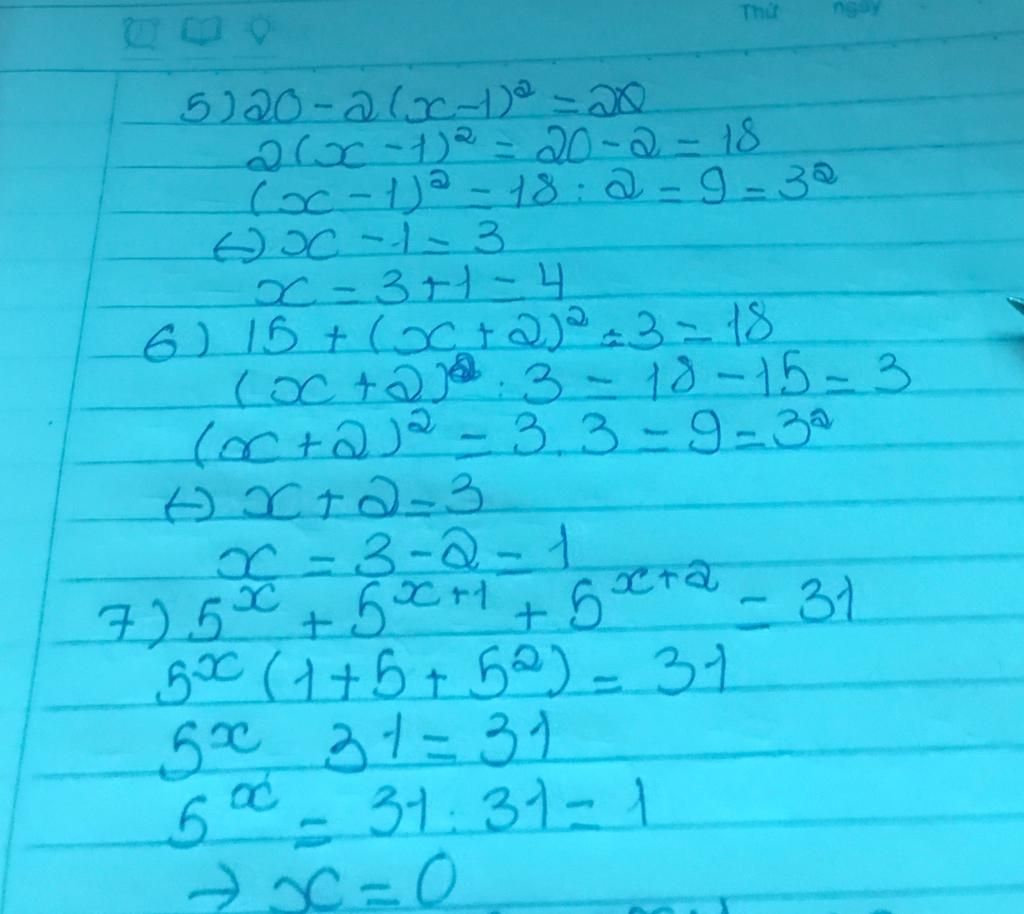 Thứ ngày
5) 20 - 2(x-1)² = 20
2(x - 1)² = 20 - 2 = 18
(x - 1)² = 18 : 2 = 9 = 3²
↔ x - 1 = 3
x = 3 + 1 = 4
6) 15 + (x + 2)² : 3 = 18
(x + 2)² : 3 = 18 - 15 = 3
(x + 2)² = 3.3 = 9 = 3²
↔ x + 2 = 3
x = 3 - 2 = 1
7) 5ˣ + 5ˣ⁺¹ + 5ˣ⁺² = 31
5ˣ (1 + 5 + 5²) = 31
5ˣ 31 = 31
5ˣ = 31 : 31 = 1
→ x = 0